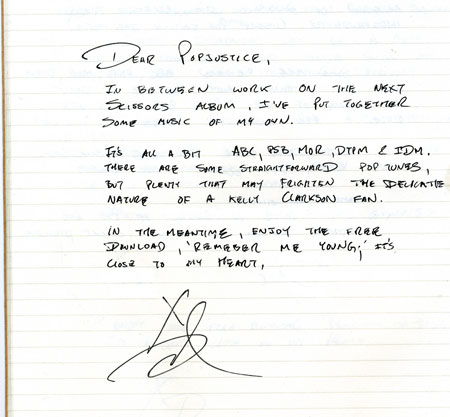 DEAR POPJUSTICE,
IN BETWEEN WORK ON THE NEXT
SCISSORS ALBUM, I'VE PUT TOGETHER
SOME MUSIC OF MY OWN.
IT'S ALL A BIT ABC, BSB, MOR, DTPM & IDM.
THERE ARE SOME STRAIGHTFORWARD POP TUNES,
BUT PLENTY THAT MAY FRIGHTEN THE DELICATE
NATURE OF A KELLY CLARKSON FAN.
IN THE MEANTIME, ENJOY THE FREE
DOWNLOAD, 'REMEBER ME YOUNG;' IT'S
CLOSE TO MY HEART,